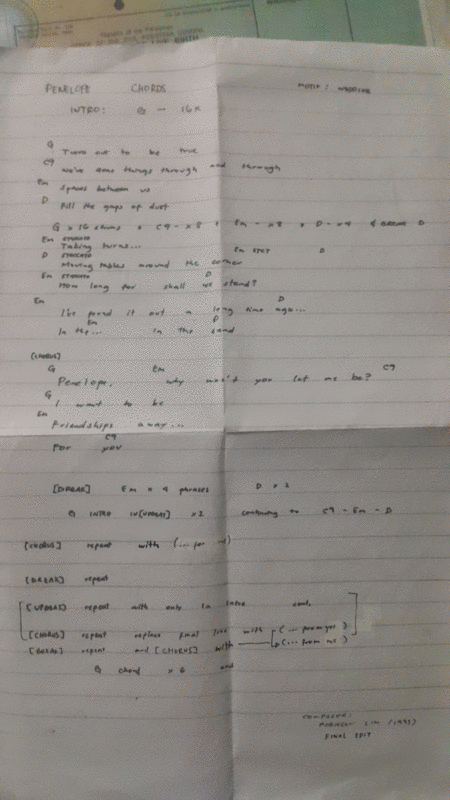 Republic of the Philippines
PENELOPE CHORDS
INTRO: G - 16x
G
Turns out to be true
C9
We've done things through and through
Em
Spaces between us
D
Fill the gaps of dust
G x 16 C9 - x 8 Em - x 8 D - x 4 D
Em STACCATO Em STAT D
Taking turns...
D STACCATO
Moving tables around the corner
Em STACCATO D
How long for shall we stand?
Em D
I've it out a long time ago...
Em D
In the... in the sand
[CHORUS]
G Em C9
Penelope, why won't you let me be?
G
I want to be
Em
Friendships away...
C9
For you
[BREAK] Em x 4 phrases D x 2
G INTRO x2 C9 - Em - D
[CHORUS] repeat with (... for me)
[BREAK] repeat
repeat with only in intro
[CHORUS] repeat replace final line with (... from you)
[BREAK] repeat and [CHORUS] with (... from me)
G chord x 6 end
COMPOSER:
LIM (1993)
FINAL EDIT